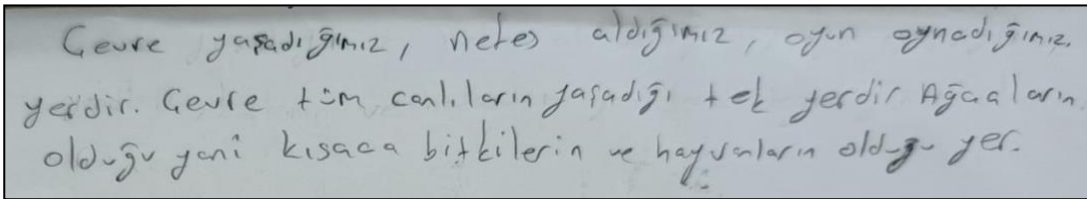 Çevre yaşadığımız, nefes aldığımız, oyun oynadığımız
yerdir. Çevre tüm canlıların yaşadığı tek yerdir Ağaçların
olduğu yani kısaca bitkilerin ve hayvanların olduğu yer.